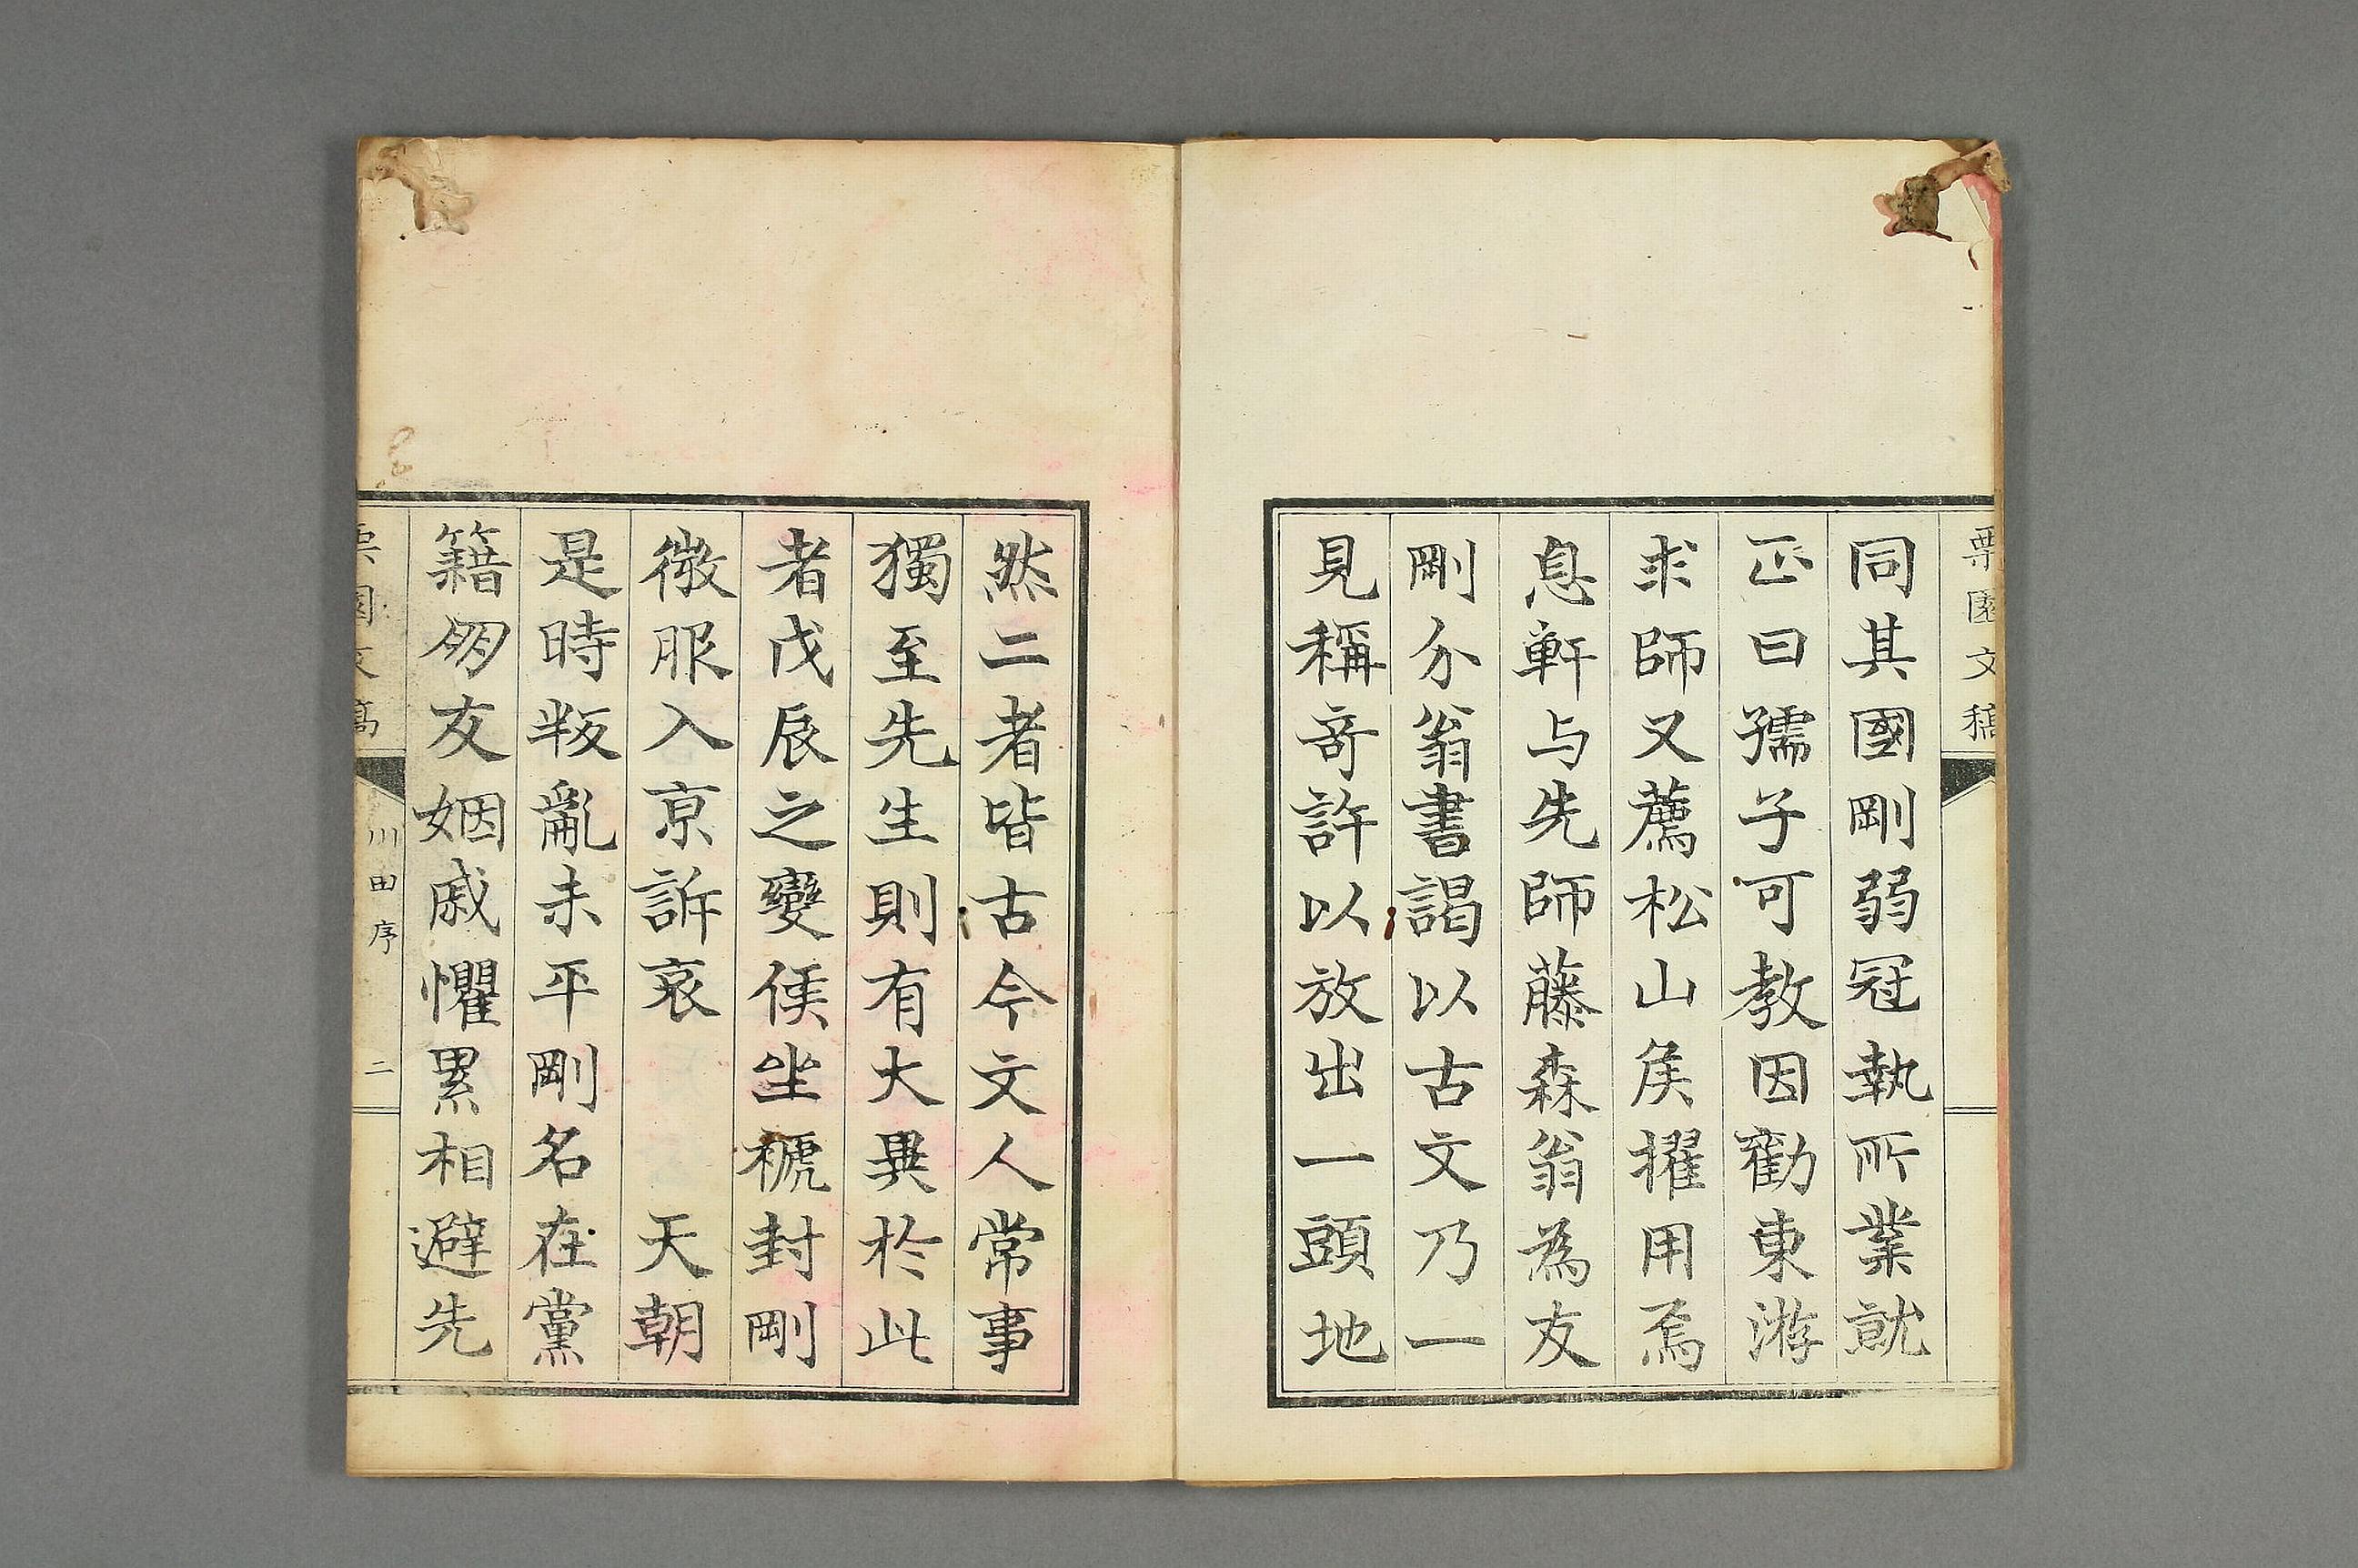 栗園文稿
同其國剛弱冠執所業就
正曰孺子可教因勸東游
求師又薦松山矦擢用焉
息軒与先師藤森翁為友
剛介翁書謁以古文乃一
見稱奇許以放出一頭地
然二者皆古今文人常事
獨至先生則有大異於此
者戊辰之變侯坐褫封剛
微服入京訴哀　天朝
是時叛亂未平剛名在黨
籍朋友姻戚懼累相避先
栗園文稿
川田序
二